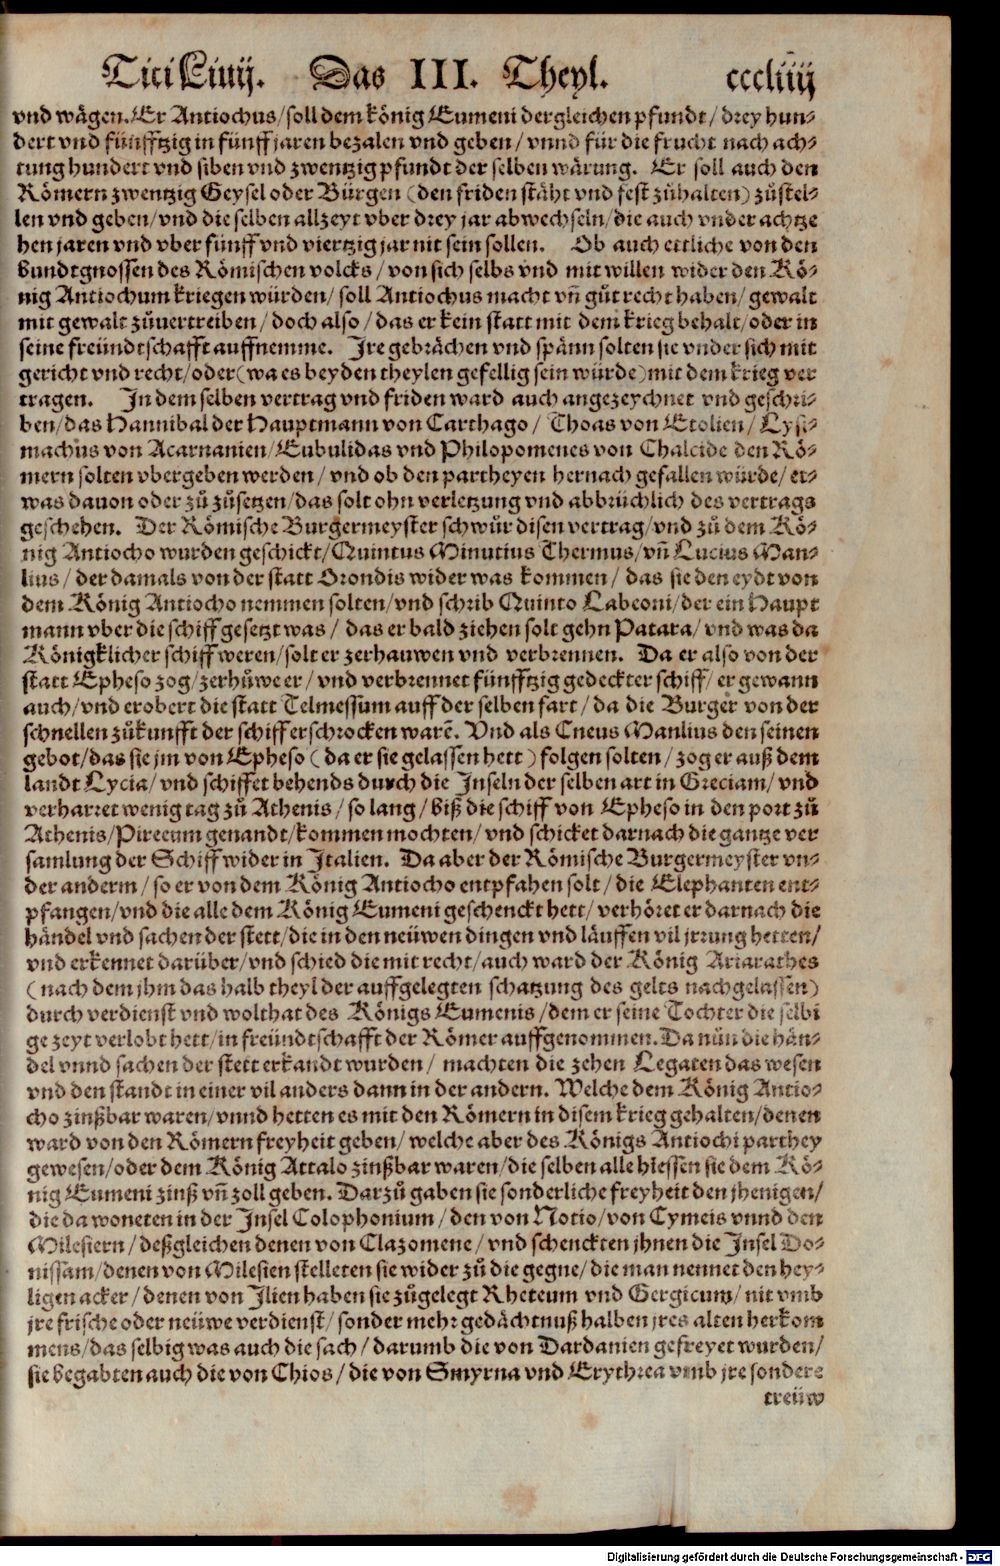 Titi Liuij. Das III. Theyl. cccliiij
vnd wägen. Er Antiochus/ soll dem könig Eumeni dergleichen pfundt/ drey hun-
dert vnd fünfftzig in fünff jaren bezalen vnd geben/ vnnd für die frucht nach ach-
tung hundert vnd siben vnd zwentzig pfundt der selben wärung. Er soll auch den
Römern zwentzig Geysel oder Bürgen (den friden stäht vnd fest zůhalten) zůstel-
len vnd geben/ vnd die selben allzeyt vber drey jar abwechseln/ die auch vnder achtze
hen jaren vnd vber fünff vnd viertzig jar nit sein sollen. Ob auch ettliche von den
bundtgnossen des Römischen volcks/ von sich selbs vnd mit willen wider den Kö-
nig Antiochum kriegen würden/ soll Antiochus macht vñ gůt recht haben/ gewalt
mit gewalt zůuertreiben/ doch also/ das er kein statt mit dem krieg behalt/ oder in
seine freündtschafft auffnemme. Jre gebrächen vnd spänn solten sie vnder sich mit
gericht vnd recht/ oder (wa es beyden theylen gefellig sein würde) mit dem krieg ver
tragen. In dem selben vertrag vnd friden ward auch angezeychnet vnd geschri-
ben/ das Hannibal der Hauptmann von Carthago/ Thoas von Etolien/ Lysi-
machus von Acarnanien/ Eubulidas vnd Philopomenes von Chalcide den Rö-
mern solten vbergeben werden/ vnd ob den partheyen hernach gefallen würde/ et-
was dauon oder zů zůsetzen/ das solt ohn verletzung vnd abbrüchlich des vertrags
geschehen. Der Römische Burgermeyster schwůr disen vertrag/ vnd zů dem Kö-
nig Antiocho wurden geschickt/ Quintus Minutius Thermus/ vñ Lucius Man-
lius/ der damals von der statt Orondis wider was kommen/ das sie den eydt von
dem König Antiocho nemmen solten/ vnd schrib Quinto Labeoni/ der ein Haupt
mann vber die schiff gesetzt was/ das er bald ziehen solt gehn Patara/ vnd was da
Königklicher schiff weren/ solt er zerhauwen vnd verbrennen. Da er also von der
statt Epheso zog/ zerhůwe er/ vnd verbrennet fünfftzig gedeckter schiff/ er gewann
auch/ vnd erobert die statt Telmessum auff der selben fart/ da die Burger von der
schnellen zůkunfft der schiff erschrocken warẽ. Vnd als Cneus Manlius den seinen
gebot/ das sie jm von Epheso (da er sie gelassen hett) folgen solten/ zog er auß dem
landt Lycia/ vnd schiffet behends durch die Inseln der selben art in Greciam/ vnd
verharret wenig tag zů Athenis/ so lang/ biß die schiff von Epheso in den port zů
Athenis/ Pireeum genandt/ kommen mochten/ vnd schicket darnach die gantze ver
samlung der Schiff wider in Italien. Da aber der Römische Burgermeyster vn-
der anderm/ so er von dem König Antiocho entpfahen solt/ die Elephanten ent-
pfangen/ vnd die alle dem König Eumeni geschenckt hett/ verhöret er darnach die
händel vnd sachen der stett/ die in den neüwen dingen vnd läuffen vil jrrung hetten/
vnd erkennet darüber/ vnd schied die mit recht/ auch ward der König Ariarathes
(nach dem jhm das halb theyl der auffgelegten schatzung des gelts nachgelassen)
durch verdienst vnd wolthat des Königs Eumenis/ dem er seine Tochter die selbi
ge zeyt verlobt hett/ in freündtschafft der Römer auffgenommen. Da nůn die hän-
del vnnd sachen der stett erkandt wurden/ machten die zehen Legaten das wesen
vnd den standt in einer vil anders dann in der andern. Welche dem König Antio-
cho zinßbar waren/ vnnd hetten es mit den Römern in disem krieg gehalten/ denen
ward von den Römern freyheit geben/ welche aber des Königs Antiochi parthey
gewesen/ oder dem König Attalo zinßbar waren/ die selben alle hiessen sie dem Kö-
nig Eumeni zinß vñ zoll geben. Darzů gaben sie sonderliche freyheit den jhenigen/
die da woneten in der Insel Colophonium/ den von Notio/ von Cymeis vnnd den
Milesiern/ deßgleichen denen von Clazomene/ vnd schenckten jhnen die Insel Do-
nissam/ denen von Milesien stelleten sie wider zů die gegne/ die man nennet den hey-
ligen acker/ denen von Ilien haben sie zůgelegt Rheteum vnd Gergicum/ nit vmb
jre frische oder neüwe verdienst/ sonder mehr gedächtnuß halben jres alten herkom
mens/ das selbig was auch die sach/ darumb die von Dardanien gefreyet wurden/
sie begabten auch die von Chios/ die von Smyrna vnd Erythrea vmb jre sondere
treüw
Digitalisierung gefördert durch die Deutsche Forschungsgemeinschaft - DFG